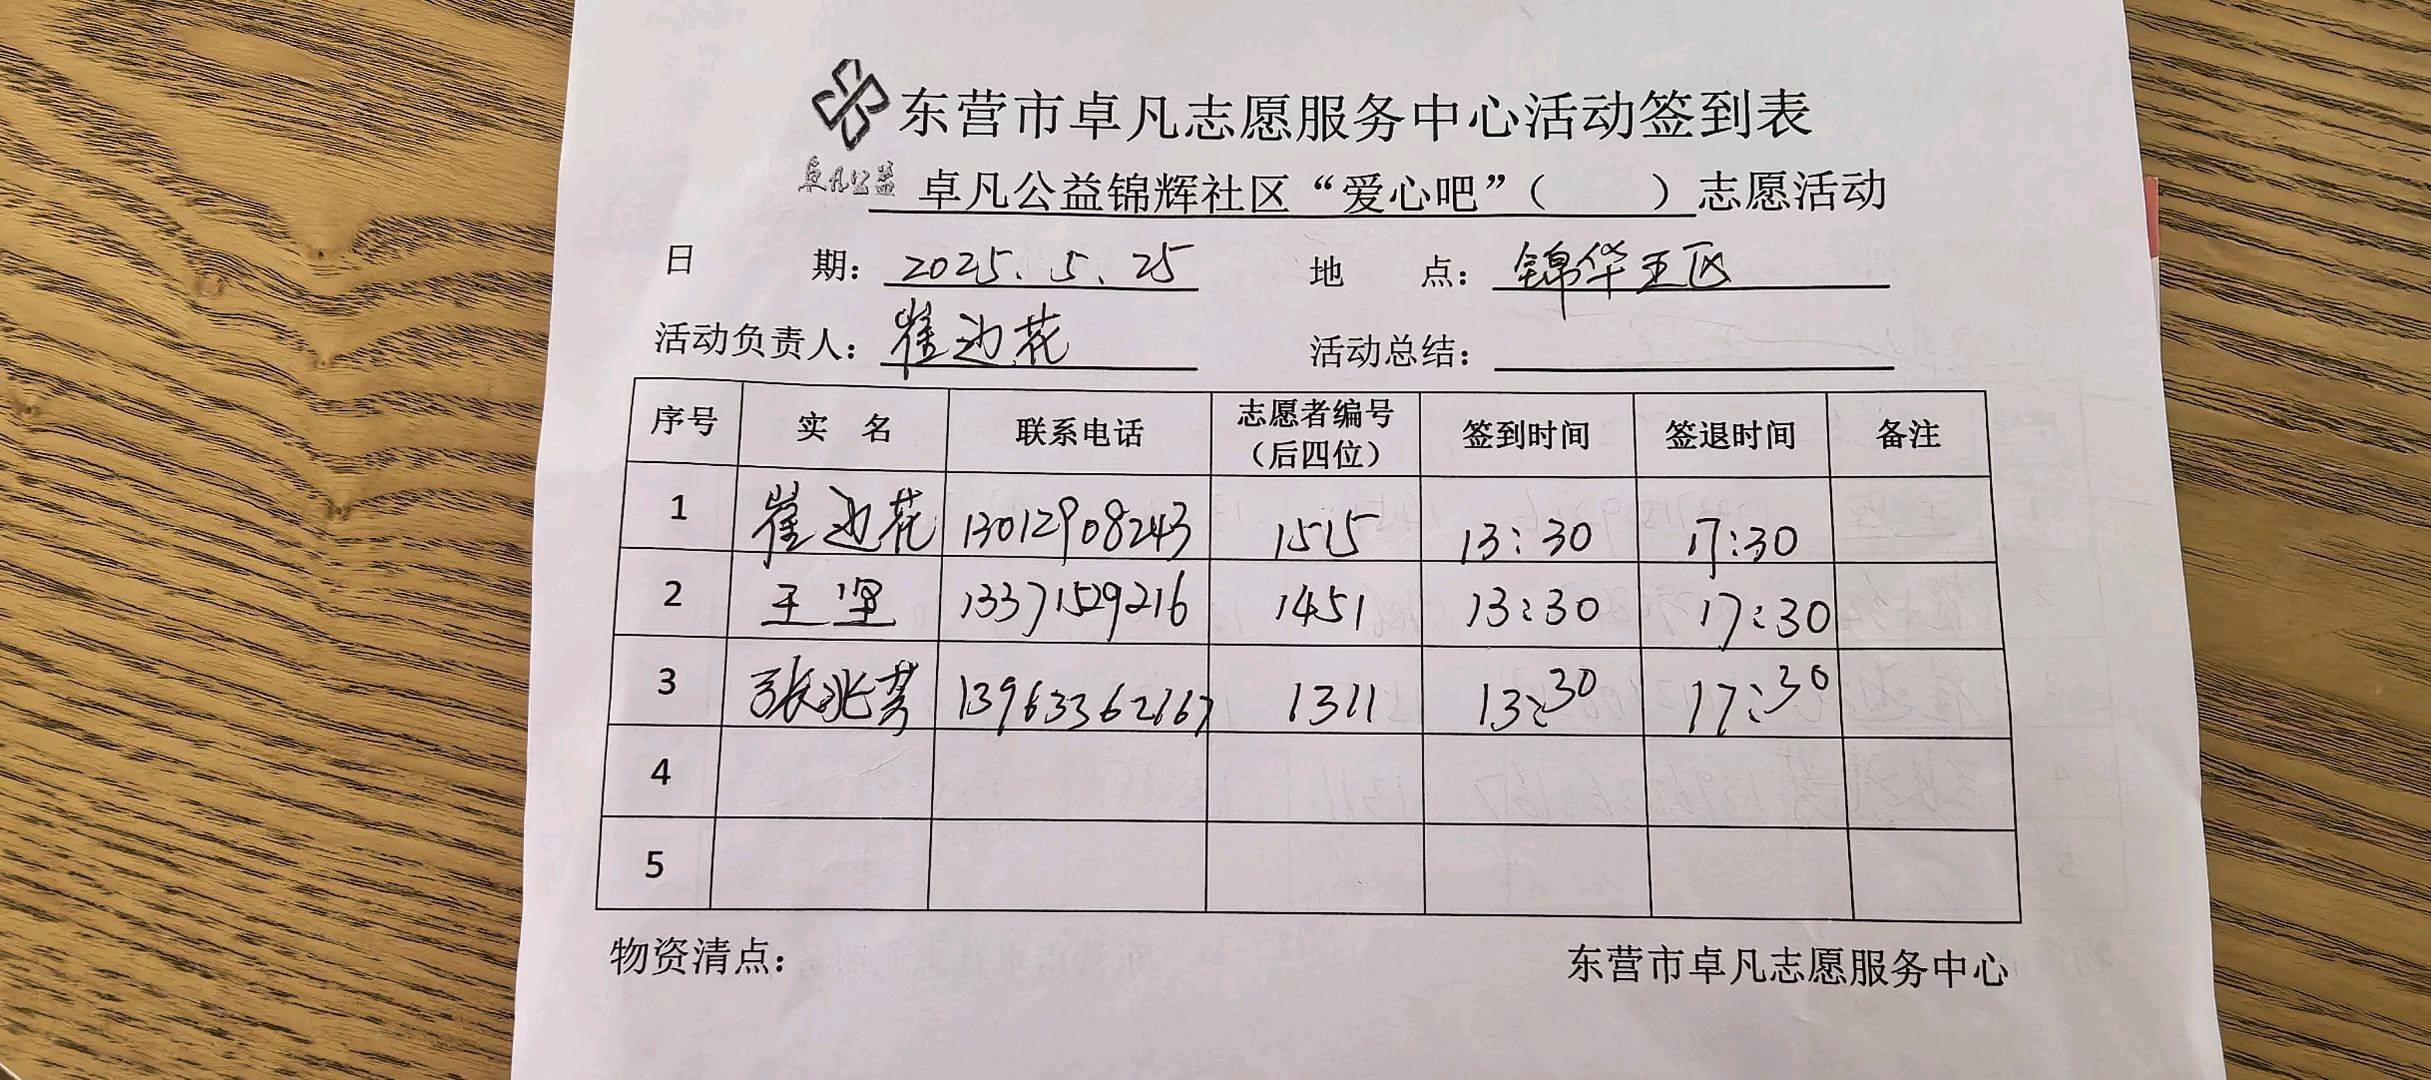 东营市卓凡志愿服务中心活动签到表
卓凡公益
卓凡公益锦辉社区“爱心吧”（　　）志愿活动
日　期：2025.5.25　地　点：锦华五区
活动负责人：崔边花　活动总结：
序号 实 名 联系电话 志愿者编号（后四位） 签到时间 签退时间 备注
1 崔边花 13012908243 1515 13:30 17:30
2 王坚 13371529216 1451 13:30 17:30
3 张兆 13963362167 1311 13:30 17:30
4
5
物资清点： 东营市卓凡志愿服务中心